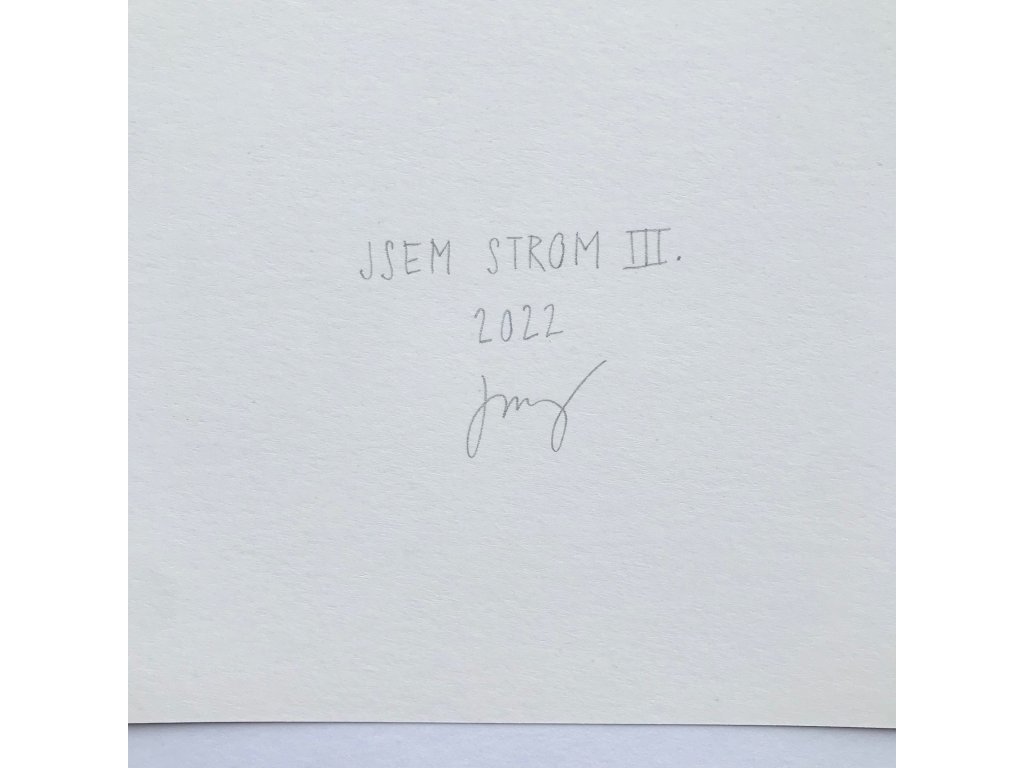 JSEM STROM III.
2022